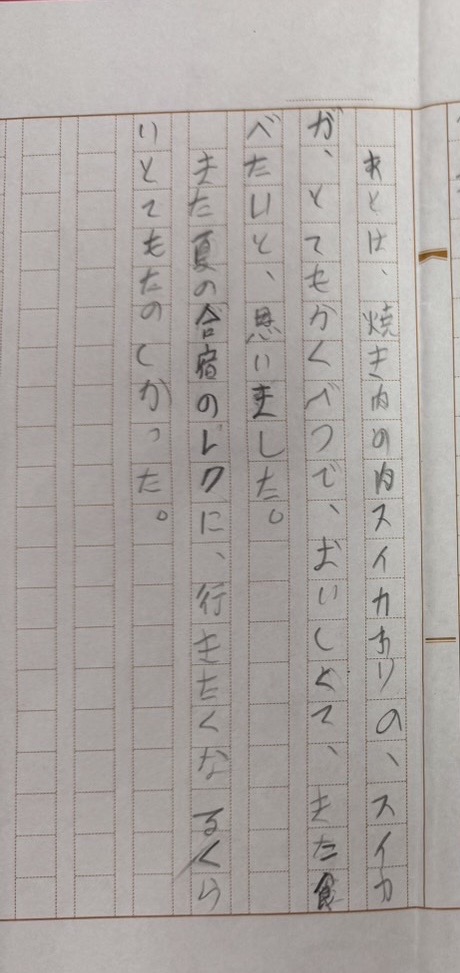 あとは、焼き肉の肉スイカわりの、スイカ
が、とてもかくべつで、おいしくて、また食
べたいと、思いました。
また夏の合宿のレクに、行きたくなるくら
いとてもたのしかった。